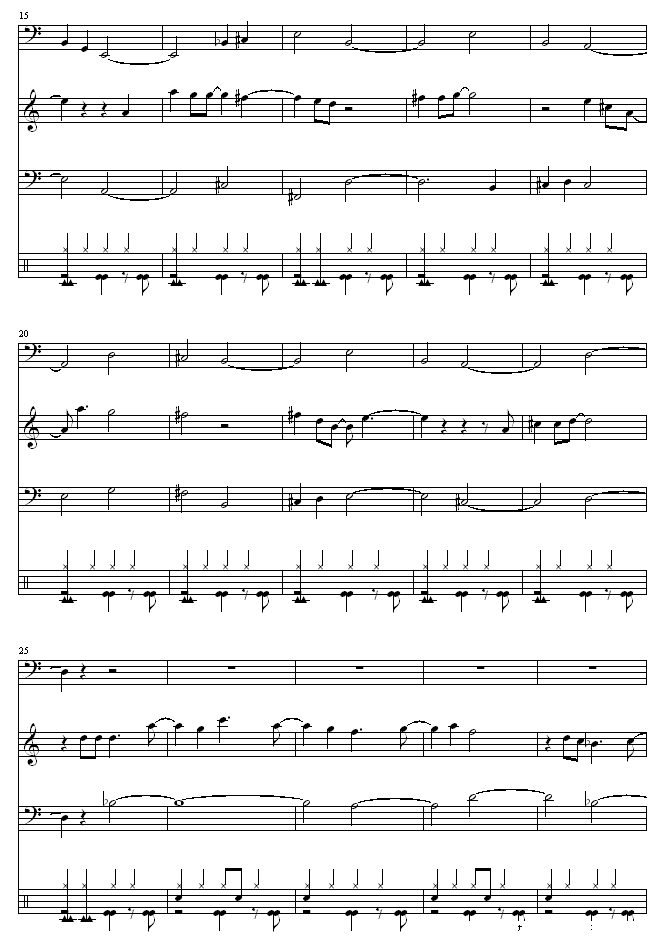 15
20
25